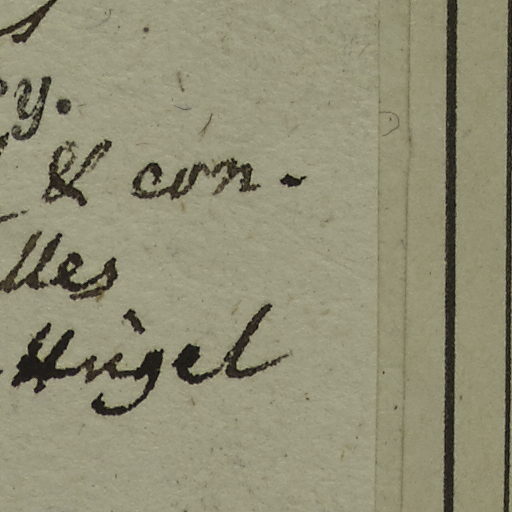 y.
& con-
lles
Hügel